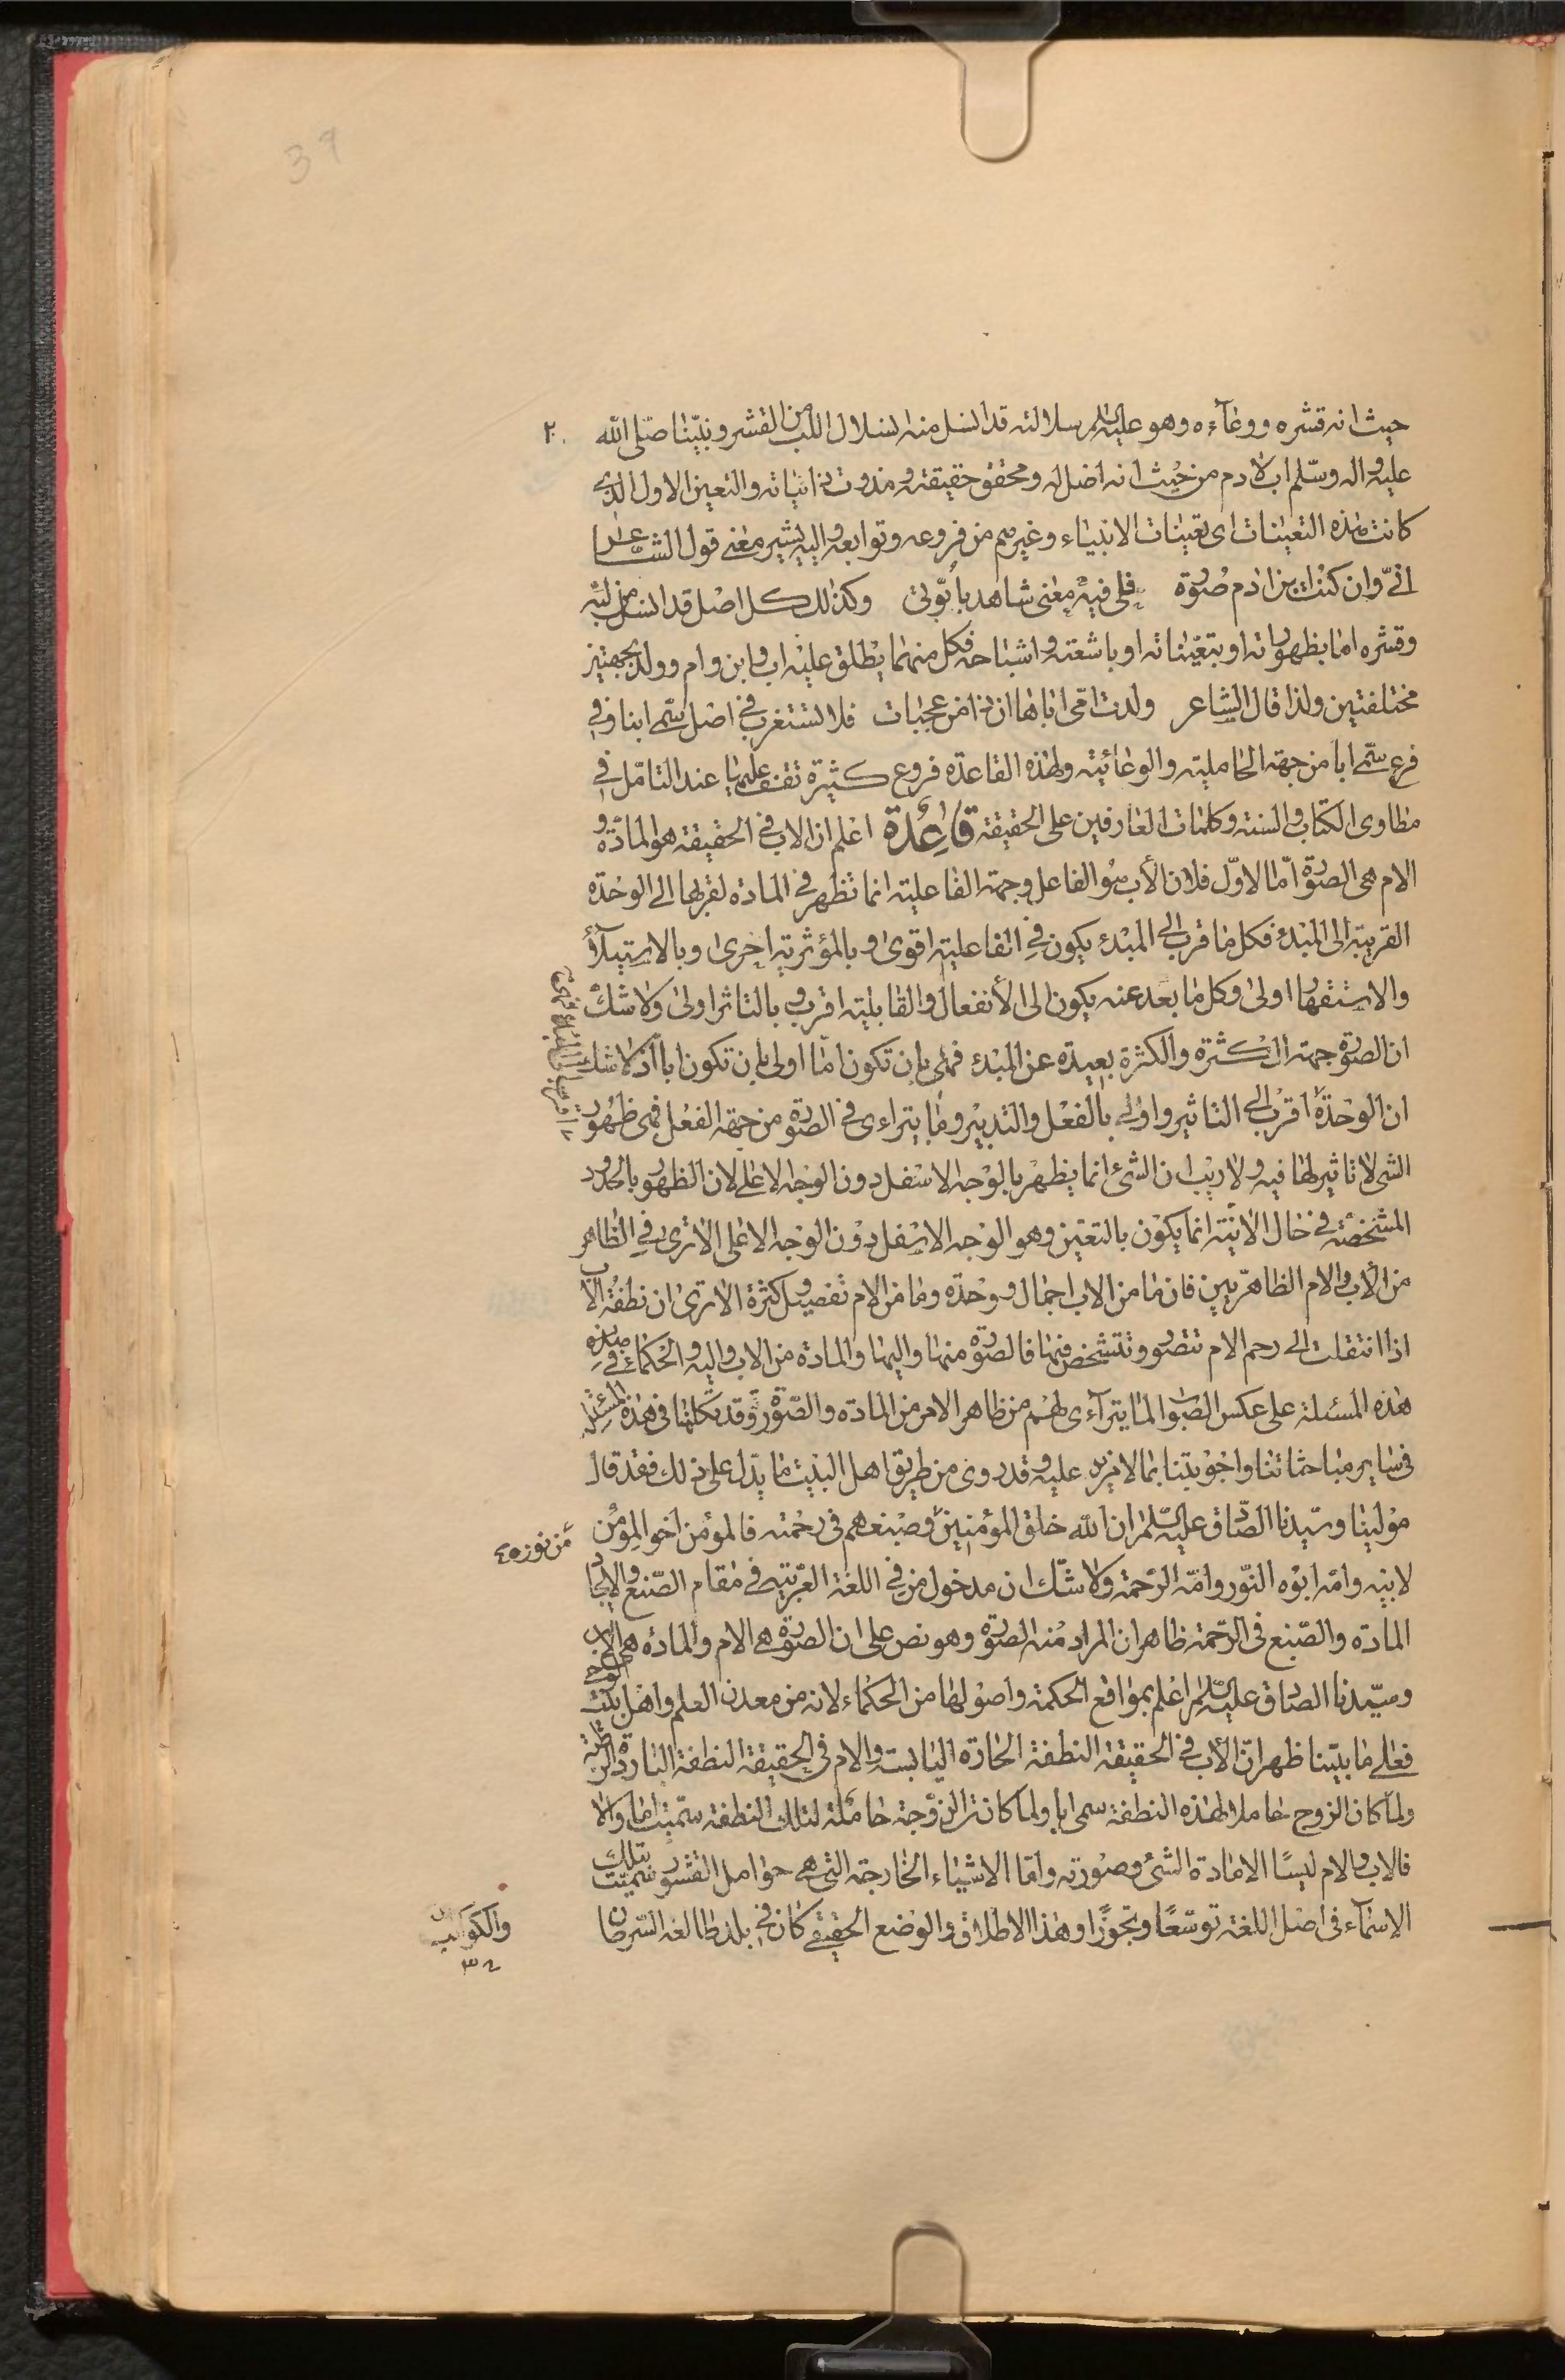 39
حيث انه قشره ووعآءه وهو عليه السلم سلالته قد انسل منه انسلال اللب من القشر ونبيّنا صلى الله
عليه واله وسلّم اب لادم من حيث انه اصل له ومحقق حقيقته ومذوت ذاتياته والتعين الاول الذى
كانت هذه التعينات اى تعينات الانبياء وغيرهم من فروعه وتوابعه واليه يشير معنى قول الشاعر
انّى وان كنت بن ادم صورة فلى فيه معنى شاهد بابوّتى وكذلك كل اصل قد انسل من لبّه
وقشره اما بظهوراته او بتعيّناته او باشعته واشباحه فكل منهما يطلق عليه اب وابن وام وولد بجهتين
مختلفتين ولذا قال الشاعر ولدت امّى اباها ان ذا من عجبات فلا تستغرب فى اصل سمّى ابنا وفى
فرع سمّى ابا من جهة الحاملية والوعائية ولهذه القاعدة فروع كثيرة تقف عليها عند التامّل فى
مطاوى الكتاب والسنة وكلمات العارفين على الحقيقة قاعدة اعلم ان الاب فى الحقيقة هو المادّة و
الام هى الصورة امّا الاوّل فلان الأب هو الفاعل وجهة الفاعلية انما تظهر فى المادة لقربها الى الوحدة
القريبة الى المبدء فكل ما قرب الى المبدء يكون فى الفاعلية اقوى وبالمؤثرية احرى وبالاستيلآء
والاستقهار اولى وكل ما بعد عنه يكون الى الأنفعال والقابلية اقرب وبالتاثر اولى ولا شك
ان الصورة جهة الكثرة والكثرة بعيدة عن المبدء فهى بان تكون امّا اولى بان تكون اباً اذ لا شك
ان الوحدة اقرب الى التاثير واولى بالفعل والتدبير وما يتراءى فى الصورة من جهة الفعل فهى ظهور
الشى لا تاثير لها فيه ولا ريب ان الشئ انما يظهر بالوجه الاسفل دون الوجه الاعلى لان الظهور بالحدود
المشخصة فى حال الانيّة انما يكون بالتعين وهو الوجه الاسفل دون الوجه الاعلى الا ترى فى الظاهر
من الأب والام الظاهريين فان ما من الاب اجمال ووحدة وما من الام تفصيل وكثرة الا ترى ان نطفة الاب
اذا انتقلت الى رحم الام تتصور وتتشخص فيها فالصورة منها واليها والمادة من الاب واليه والحكماء فى
هذه المسئلة على عكس الصواب لما يترآءى لهم من ظاهر الامر من المادة والصّورة وقد تكلمنا فى هذه المسئلة
فى ساير مباحثاتنا واجوبتنا بما لا مزيد عليه وقد روى من طريق اهل البيت ما يدل على ذلك فقد قال
مولينا وسيّدنا الصّادق عليه السّلم ان الله خلق المؤمنين وصبغهم فى رحمته فالمؤمن اخو المؤمن
من نوره
لابيه وامّه ابوه النّور وامّه الرّحمة ولا شكّ ان مدخول من فى اللغة العربية فى مقام الصّنع والايجاد
المادة والصّبغ فى الرّحمة ظاهر ان المراد منه الصورة وهو نص على ان الصورة هى الام والمادة هى الاب
وسيّدنا الصادق عليه السّلم اعلم بمواقع الحكمة واصولها من الحكماء لانه من معدن العلم واهل بيت الوحى
فعلى ما بيّنا ظهر انّ الأب فى الحقيقة النطفة الحارة اليابسة والام فى الحقيقة النطفة الباردة الرطبة
ولمّا كان الزوج حاملا لهذه النطفة سمى ابا ولما كانت الزوجة حاملة لتلك النطفة سمّيت اما والا
فالاب والام ليسا الا مادة الشئ وصورته وامّا الاشياء الخارجة التى هى حوامل القشور سميّت بتلك
الاسمآء فى اصل اللغة توسّعًا وتجوّزًا وهذا الاطلاق والوضع الحقيقى كان فى بلد طالعه السّرطان
والكواكب